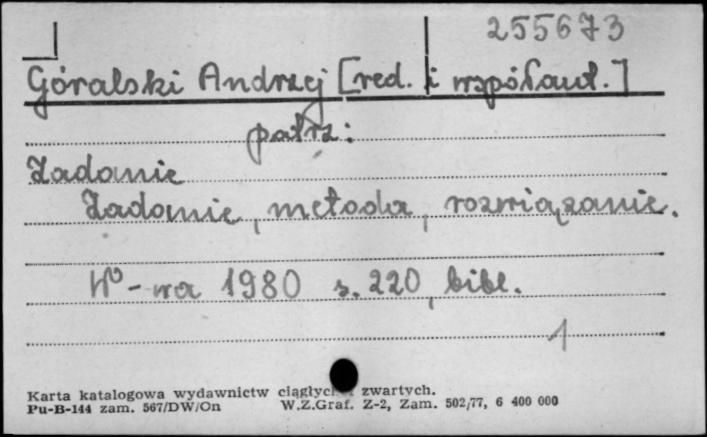 255673
Góralski Andrzej [red. i współaut.]
patrz:
Zadanie
Zadanie, metoda, rozwiązanie.
W-wa 1980 s. 220, bibl.
1
Karta katalogowa wydawnictw ciągłych i zwartych.
Pu-B-144 zam. 567/DW/On W.Z.Graf. Z-2, Zam. 502/77, 6 400 000